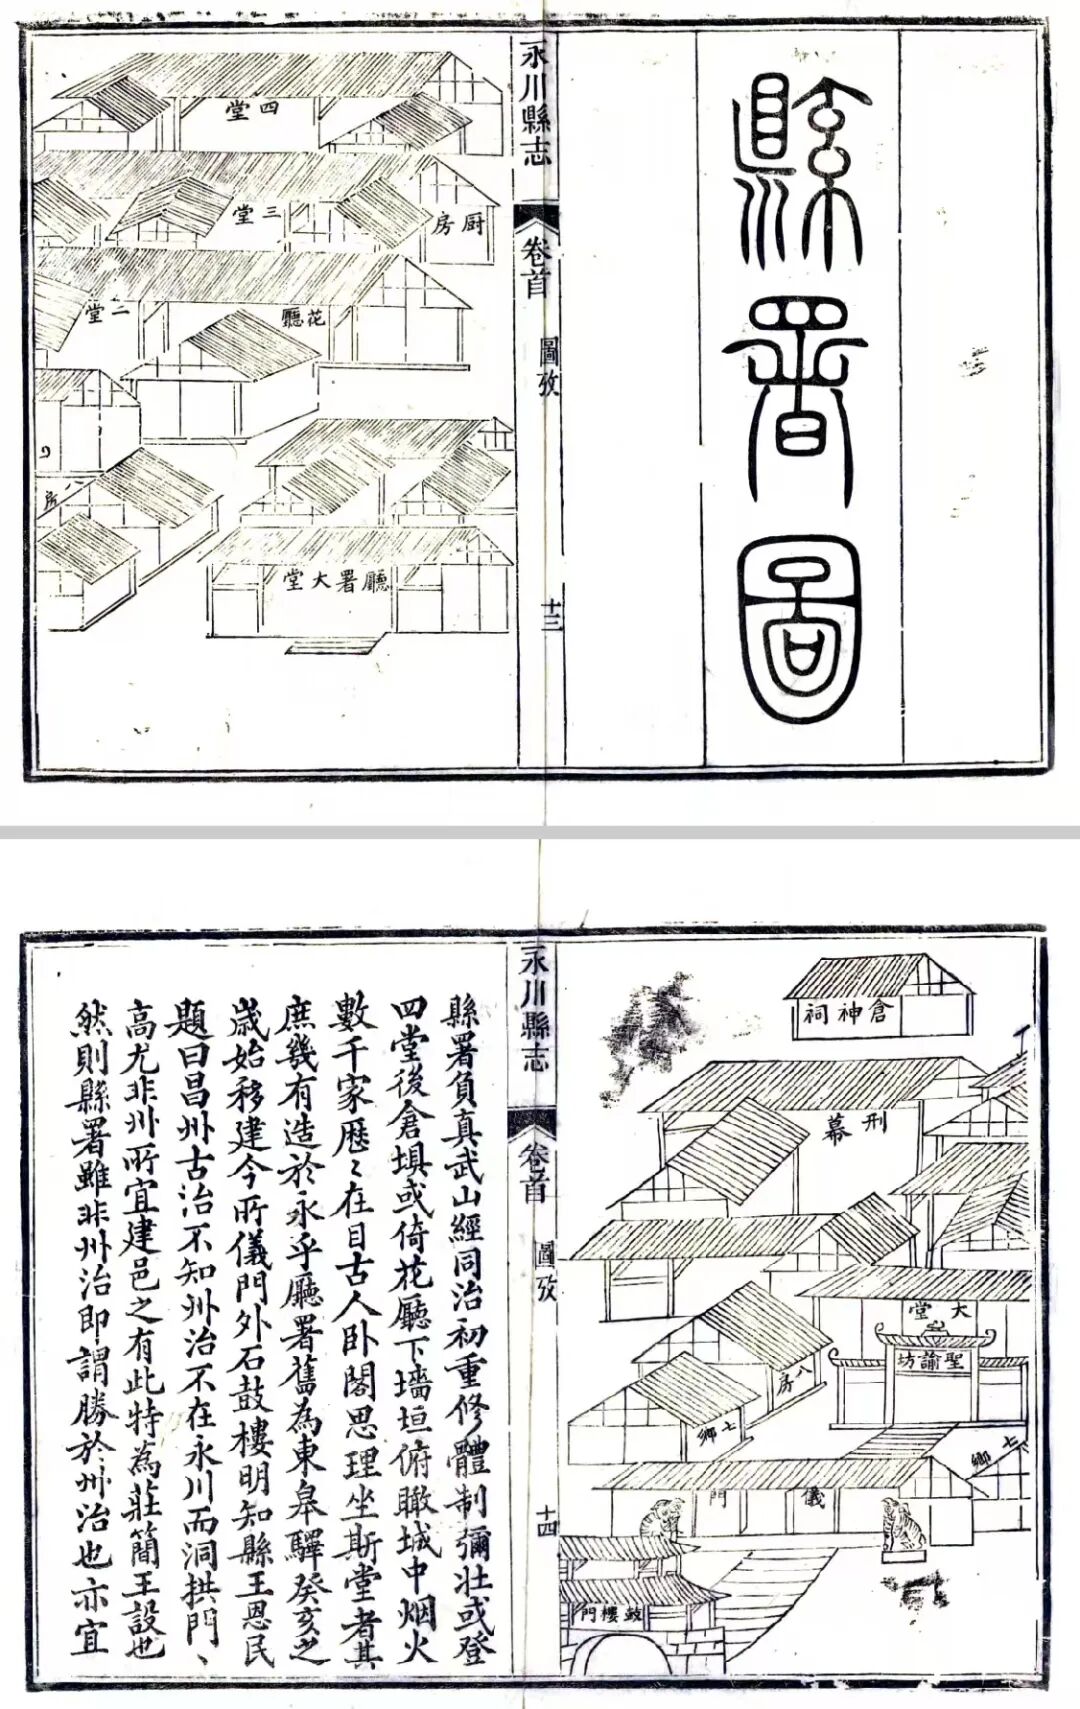 縣署圖
永川縣志
卷首
圖攷
十三
四堂
三堂
厨房
二堂
花廳
八房
廳署大堂
倉神祠
刑幕
大堂
聖諭坊
八房
七鄉
七鄉
儀門
鼓樓門
永川縣志
卷首
圖攷
十四
縣署負真武山經同治初重修體制彌壯或登
四堂後倉塤或倚花廳下墻垣俯瞰城中烟火
數千家歷〻在目古人卧閣思理坐斯堂者其
庶幾有造於永乎廳署舊為東皋驛癸亥之
歲始移建今所儀門外石鼓樓明知縣王恩民
題曰昌州古治不知州治不在永川而洞拱門、
高尤非州所宜建邑之有此特為莊簡王設也
然則縣署雖非州治即謂勝於州治也亦宜